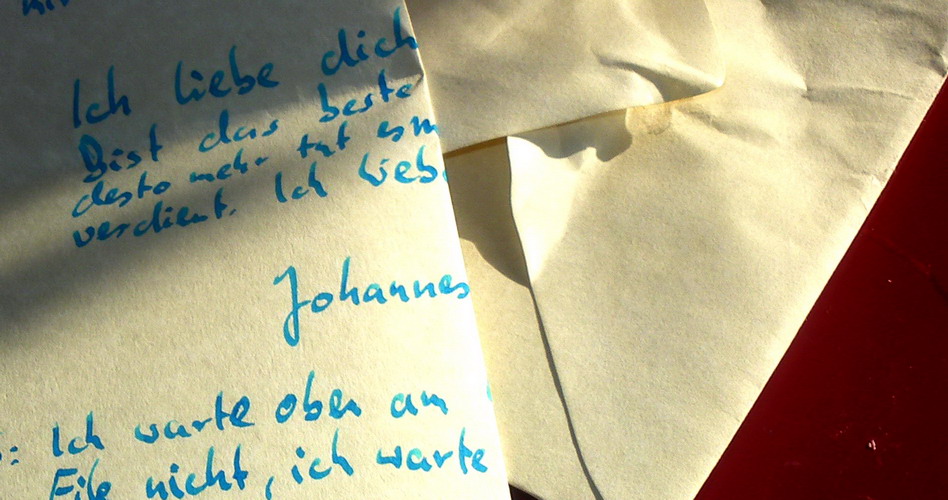 Ich liebe dich
Bist das beste
desto mehr tut es
verdient. Ich
Johannes
: Ich warte oben am
Eile nicht, ich warte